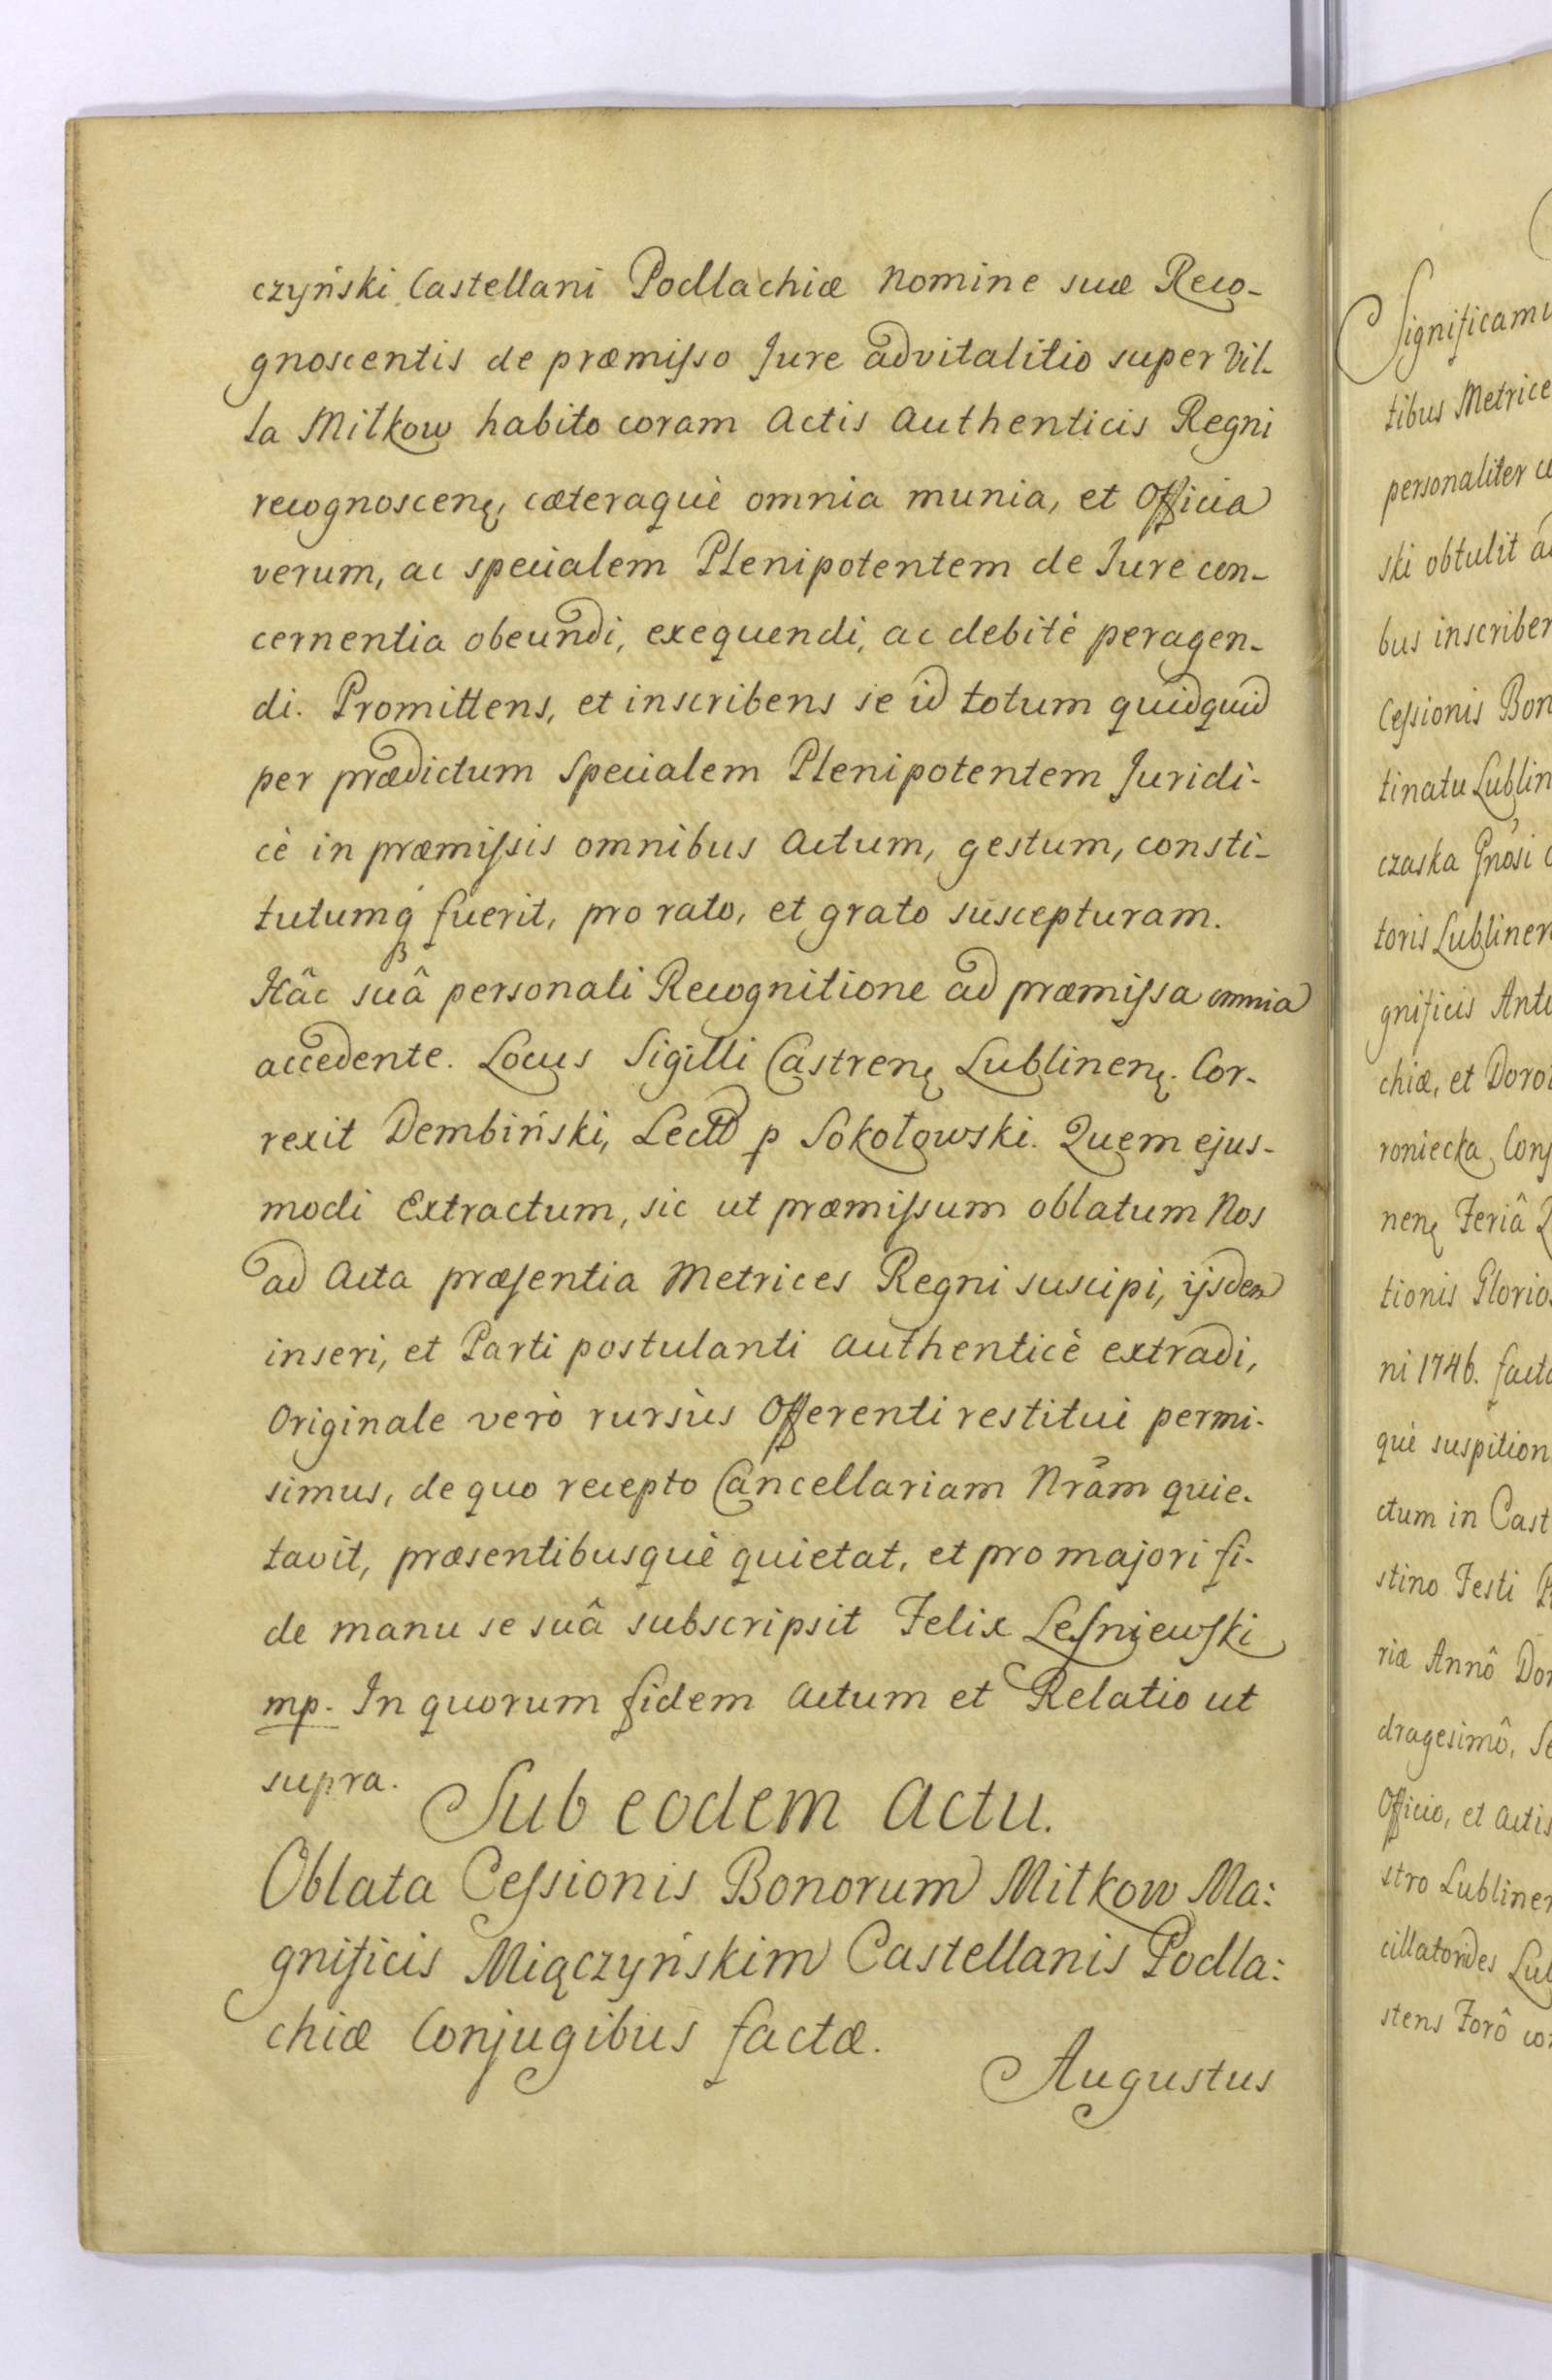 czyński Castellani Podlachiæ nomine suæ Reco-
gnoscentis de præmisso Jure advitalitio super Vil-
la Mitkow habito coram Actis Authenticis Regni
recognoscenę, cæteraquè omnia munia, et Officia
verum, ac specialem Plenipotentem de Jure con-
cernentia obeundi, exequendi, ac debitè peragen-
di. Promittens, et inscribens se id totum quidquid
per prædictum Specialem Plenipotentem Juridi-
cè in præmissis omnibus actum, gestum, consti-
tutumq́ fuerit, pro rato, et grato suscepturam.
Hâc suâ personali Recognitione ad præmissa omnia
accedente. Locus Sigilli Castrenę Lublinenę. Cor-
rexit Dembiński, Lectũ p Sokołowski. Quem ejus-
modi Extractum, sic ut præmissum oblatum Nos
ad Acta præsentia Metrices Regni suscipi, ijsdem
inseri, et Parti postulanti authenticè extradi,
Originale verò rursùs Offerenti restitui permi-
simus, de quo recepto Cancellariam Nrãm quie-
tavit, præsentibusquè quietat, et pro majori fi-
de manu se suâ subscripsit Felix Leśniewski
mp. In quorum fidem Actum et Relatio ut
supra.
Sub eodem Actu.
Oblata Cessionis Bonorum Mitkow Ma:
gnificis Miączyńskim Castellanis Podla:
chiæ Conjugibus factæ.
Augustus
Significamu
tibus Metrice
personaliter co
ski obtulit a
bus inscriben
Cessionis Bon
tinatu Lublin
czaska Gnosi
toris Lublinen
gnificis Anto
chiæ, et Dorot
roniecka Conj
nenę Feriâ
tionis Glorio
ni 1746. facta
què suspition
ctum in Cast
stino Festi
riæ Annô Do
dragesimô, Se
Officio, et Actis
stro Lublinen
cillatorides Lub
stens Forô co